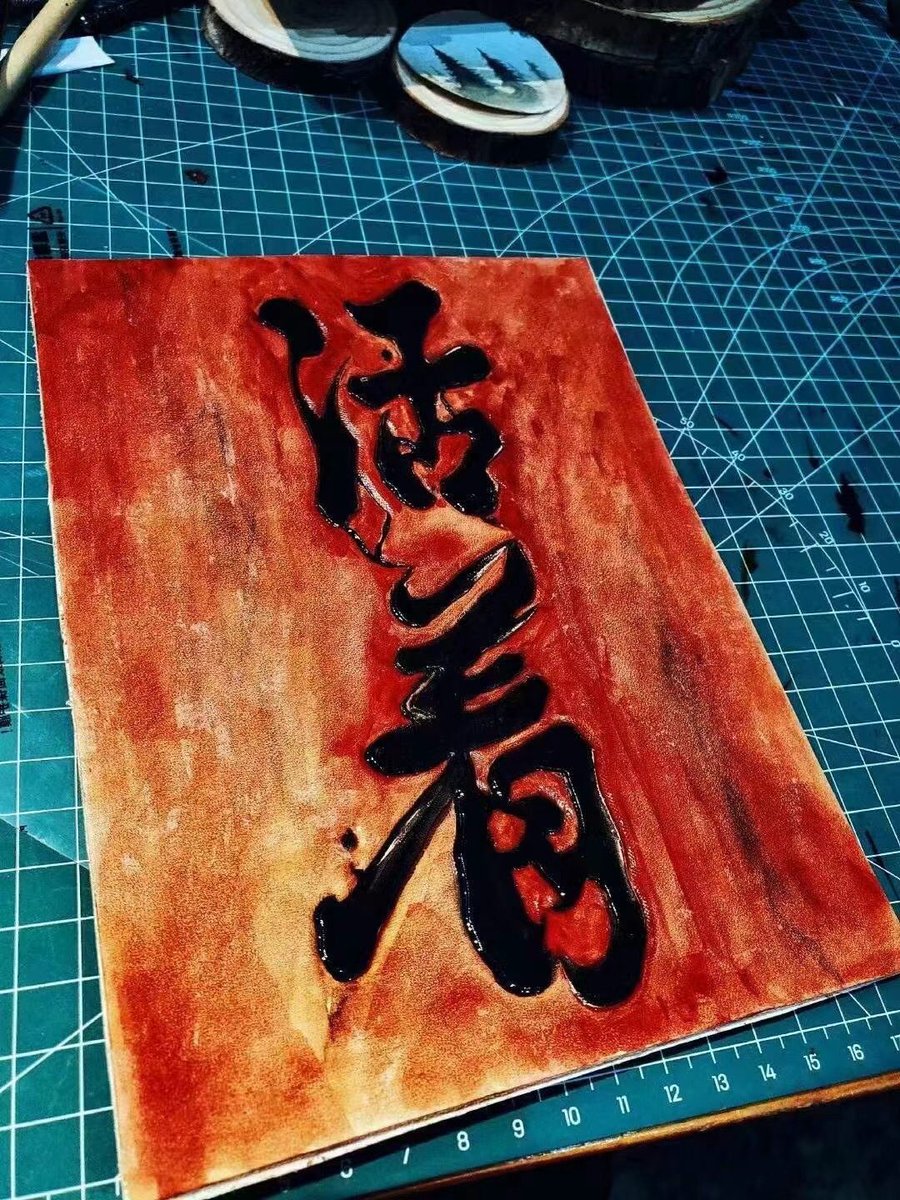 活着
50 40 30 20 10 0
6 7 8 9 10 11 12 13 14 15 16